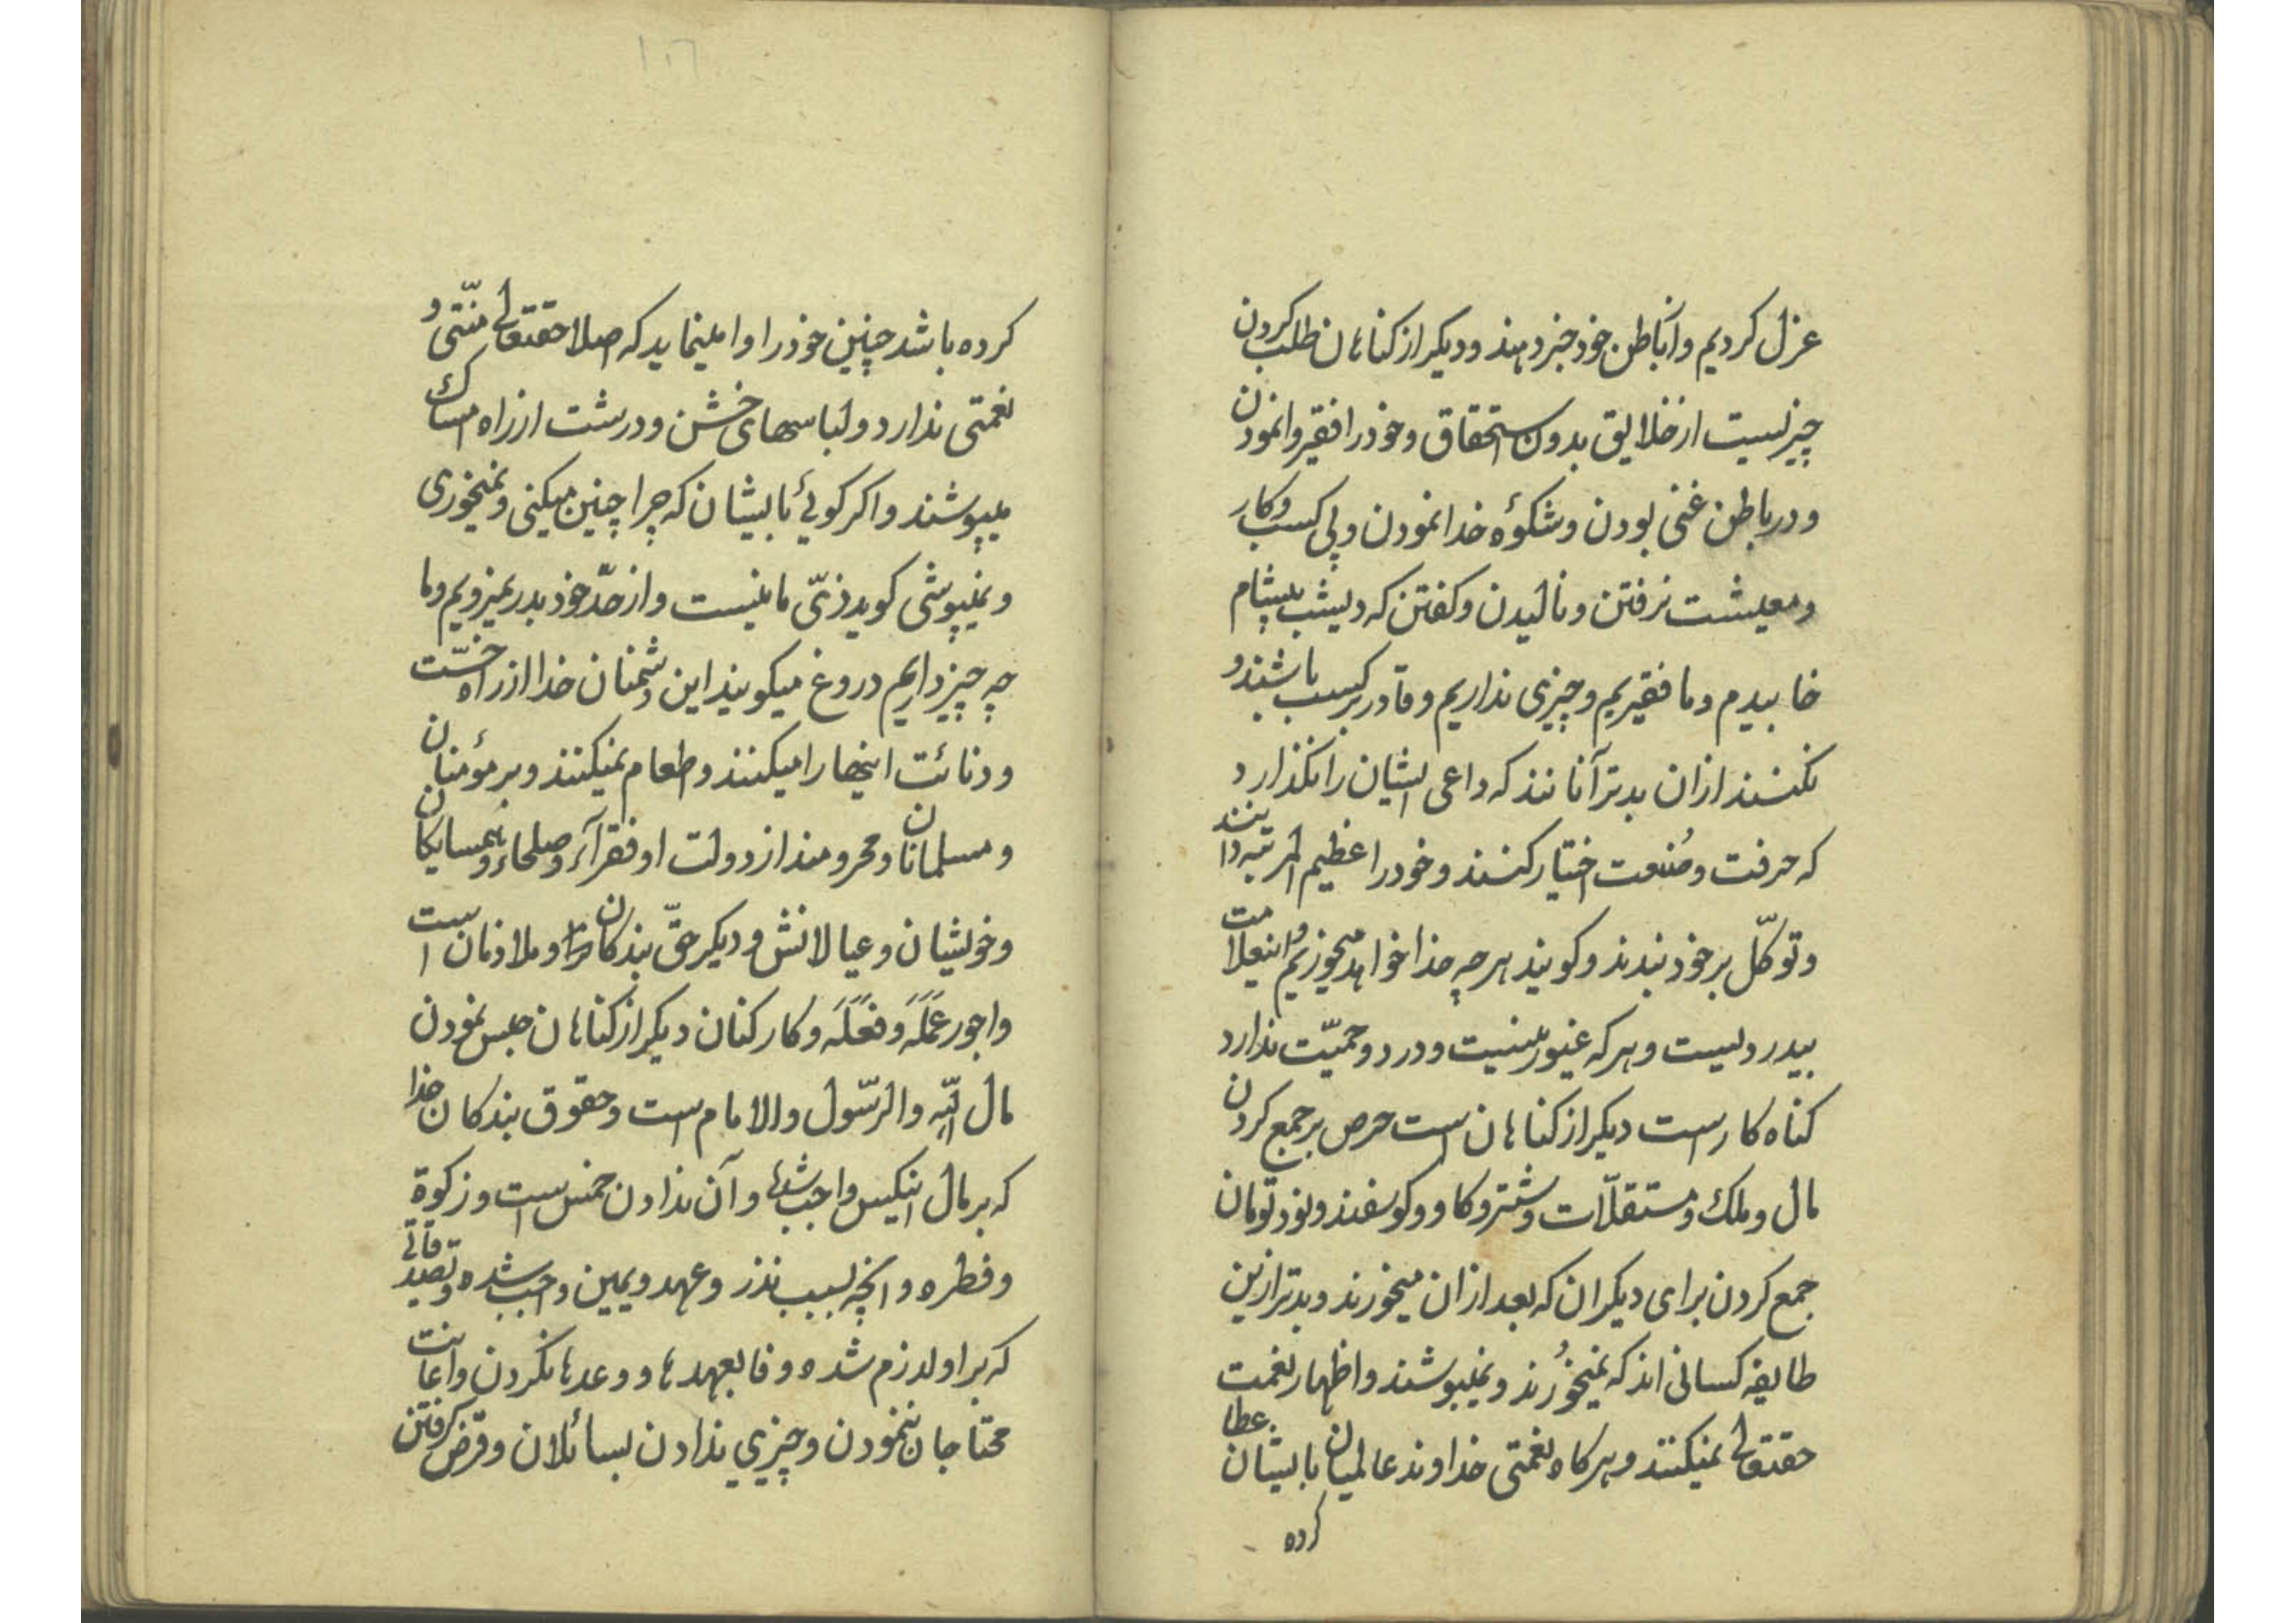 عزل کردیم و آنا باطن خود خبر دهند و دیکر از کناهان طلب کردن
چیزیست از خلایق بدون استحقاق و خود را فقیر وانمودن
و در باطن غنی بودن و شکوٰه خدا نمودن و پی کسب و کار
و معیشت نرفتن و نالیدن و کفتن که دیشب بیشام
خابیدم و ما فقیریم و چیزی نداریم و قادر بر کسب باشند و
نکنند از ان بدتر آنانند که داعی ایشان را نکذارد
که حرفت و صُنعت اختیار کنند و خود را عظیم المرتبه دانند
و توکّل بر خود بندند و کویند هر چه خدا خواهد میخوریم و اینعلامت
بیدردیست و هر که غیور نیست و درد و حمیّت ندارد
کناه کار است دیکر از کناهان است حرص بر جمع کردن
مال و ملک و مستقلّات و شتر و کاو و کوسفند و نود تومان
جمع کردن برای دیکران که بعد از ان میخورند و بدتر ازین
طایفه کسانی اند که نمیخوُرند و نمیپوشند و اظهار نعمت
حقتعالی نمیکنند و هرکاه نعمتی خداوند عالمیان بایشان عطا
کرده
کرده باشد چنین خود را وامینماید که اصلا حقتعالی منّتی و
نعمتی ندارد و لباسهای خشن و درشت از راه امساک
میپوشند و اکر کوئی بایشان که چرا چنین میکنی و نمیخوری
و نمیپوشی کوید زیّ ما نیست و از حدّ خود بدر نمیرویم و ما
چه چیز داریم دروغ میکویند این دشمنان خدا از راه خسّت
و دنائت اینها را میکنند و طعام نمیکنند و بر مؤمنان
و مسلمانان و محرومند از دولت او فقرآء و صلحاء و همسایکان
و خویشان و عیالانش و دیکر حقّ بندکان و ملازمان است
و اجور عَمَلَه و فَعَلَه و کارکنان دیکر از کناهان حبس نمودن
مال اللّه و الرّسول و الامام است و حقوق بندکان خدا
که بر مال اینکس واجب شدها و آن ندادن خمس است و زکوة
و فطره و انچه بسبب نذر و عهد و یمین واجب شده و تصدقاتی
که بر او لازم شده و وفا بعهدها و وعدها نکردن و اعانت
محتاجان ننمودن و چیزی ندادن بسائلان و قرض کرفتن